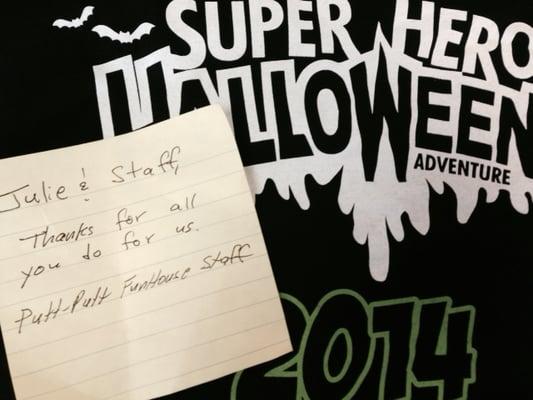 SUPER HERO
HALLOWEEN
ADVENTURE
2014
Julie & Staff,
Thanks for all
you do for us.
Putt-Putt FunHouse Staff